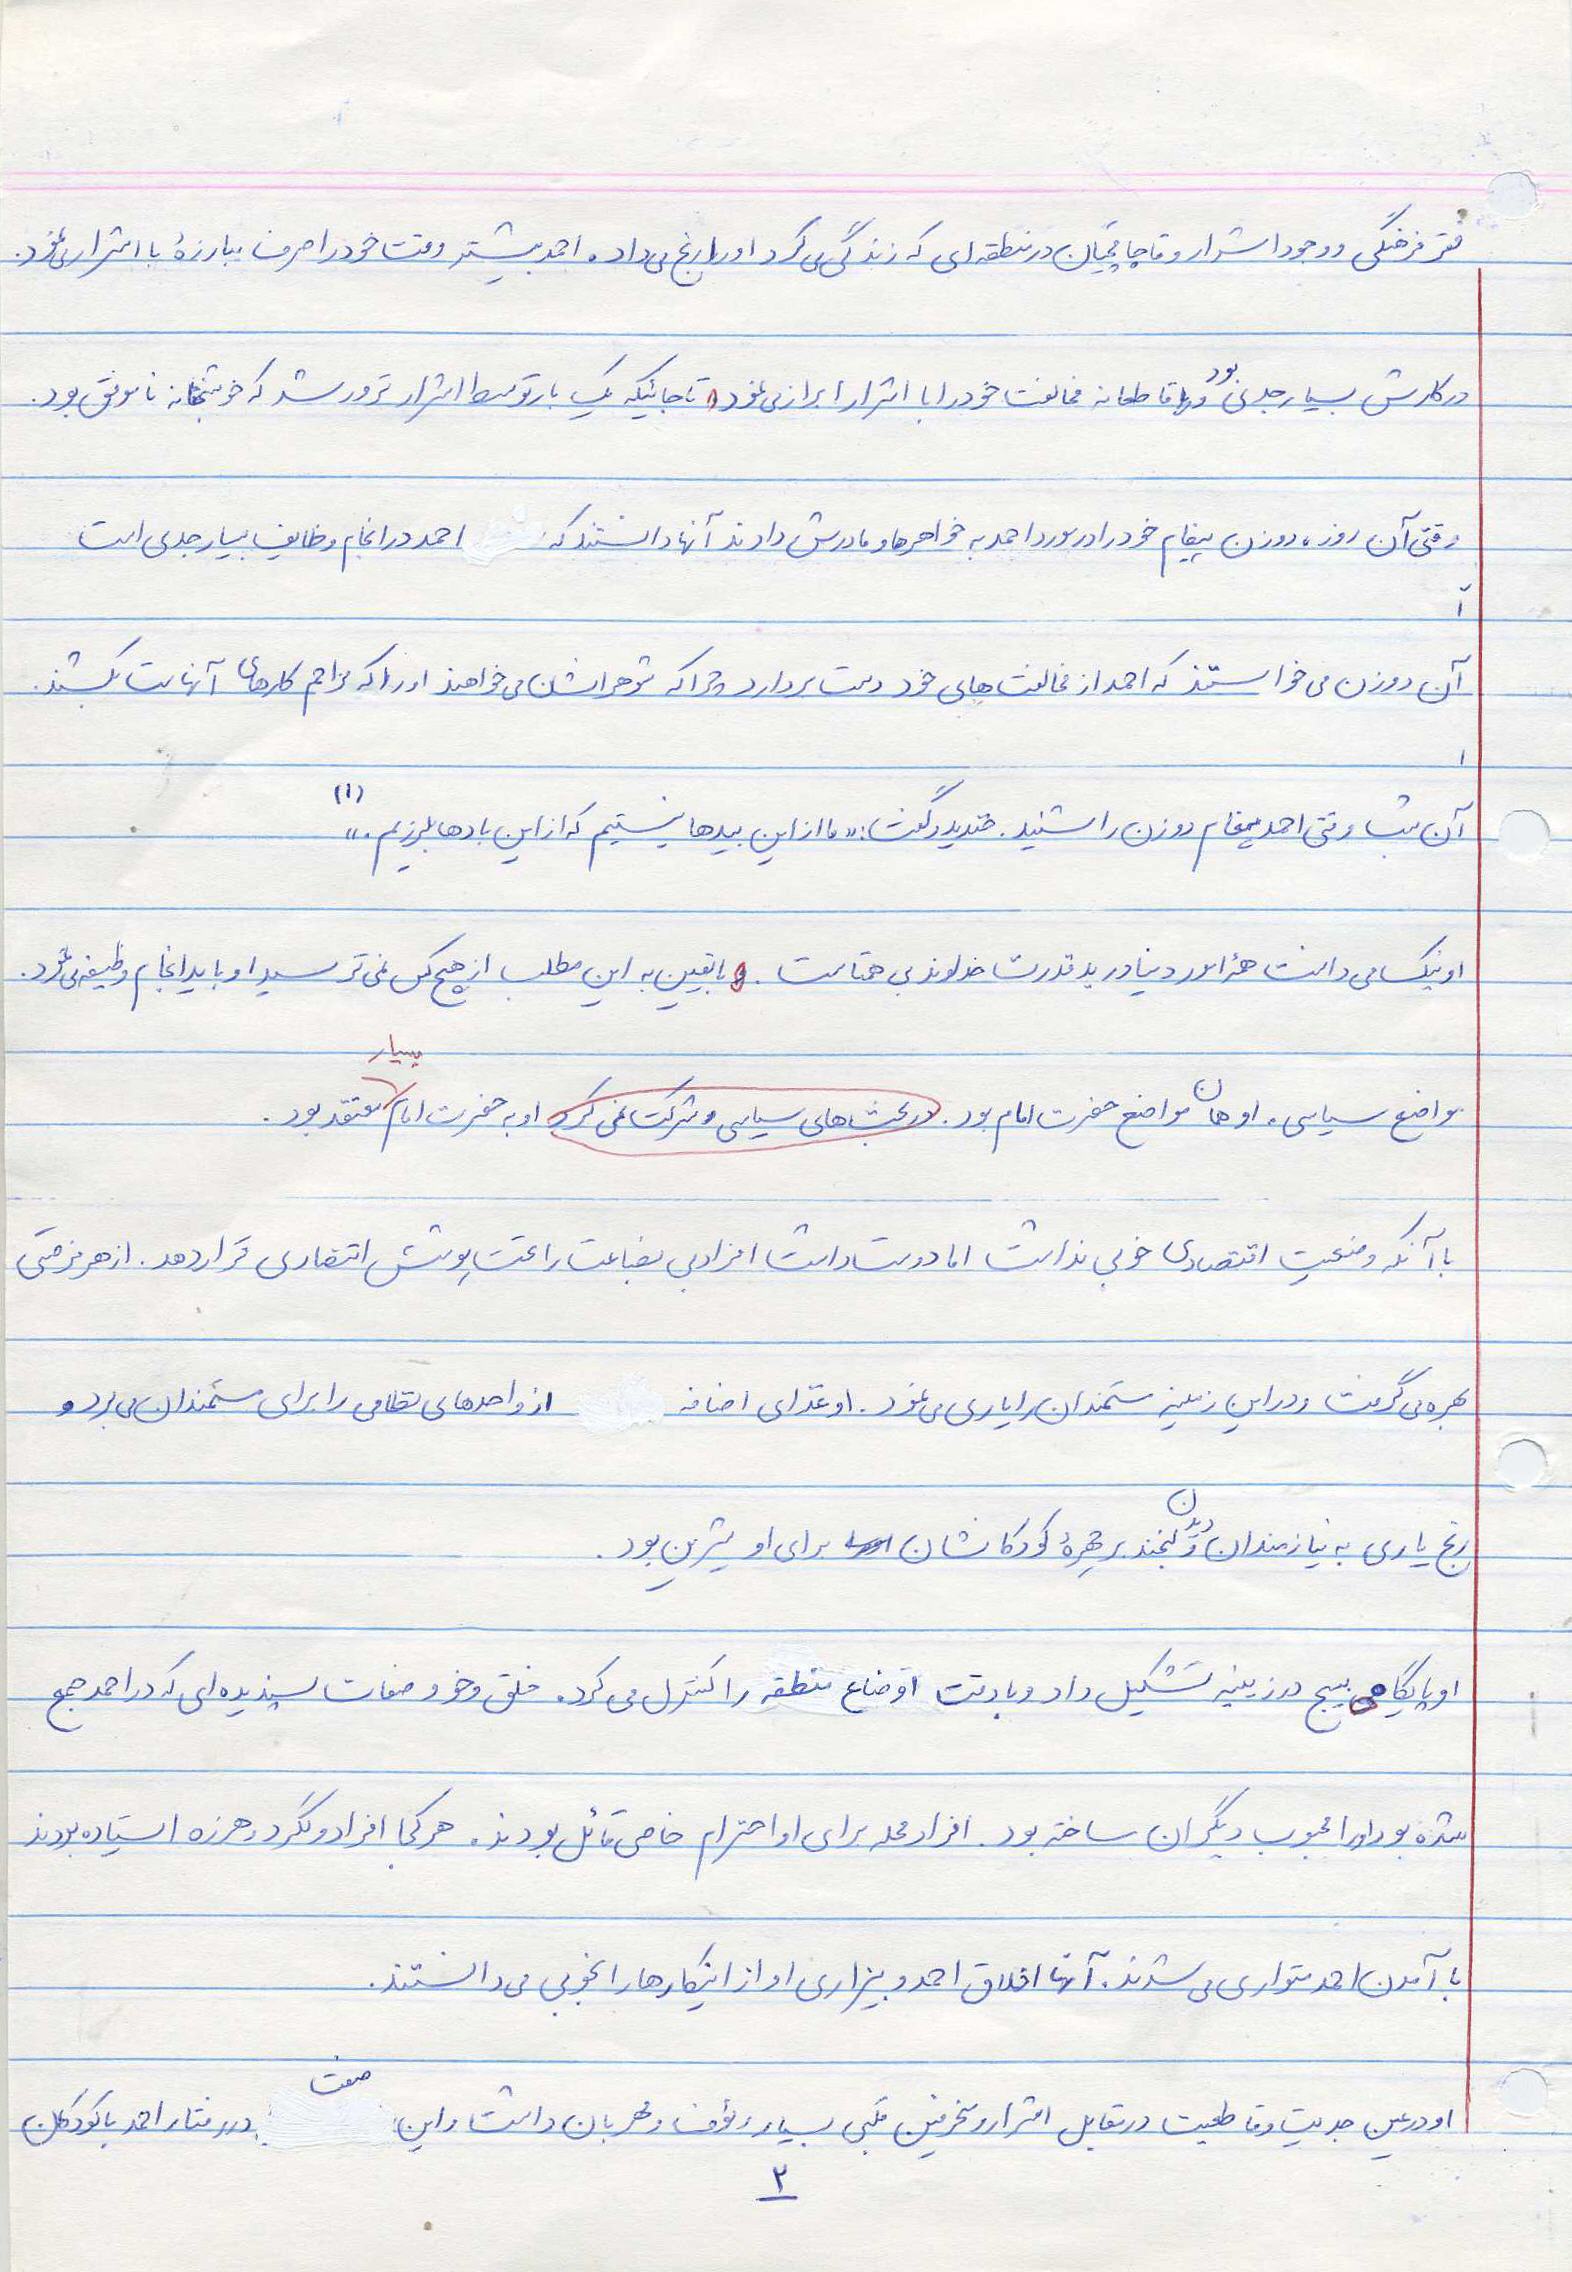 فقر فرهنگی و وجود اشرار و قاچاقچیان در منطقه ای که زندگی می کرد او را رنج می داد. احمد بیشتر وقت خود را صرف مبارزۀ با اشرار می نمود.
در کارش بسیار جدی بود و قاطعانه مخالفت خود را با اشرار ابراز می نمود تا جائیکه یک بار توسط اشرار ترور شد که خوشبختانه ناموفق بود.
وقتی آن روز، دو زن پیغام خود را در مورد احمد به خواهرها و مادرش دادند آنها دانستند که احمد در انجام وظایف بسیار جدی است
آ
آن دو زن می خواستند که احمد از مخالفت های خود دست بردارد چرا که شوهرانشان می خواهند او را که مزاحم کارهای آنهاست بکشند.
ا
آن شب وقتی احمد پیغام دو زن را شنید. خندید و گفت: «ما از این بیدها نیستیم که از این بادها بلرزیم.» (۱)
او نیک می دانست همۀ امور دنیا در ید قدرت خداوند بی همتاست. و با یقین به این مطلب از هیچ کس نمی ترسید او باید انجام وظیفه می نمود.
مواضع سیاسی، او همان مواضع حضرت امام بود. در بحث های سیاسی و شرکت نمی کرد او به حضرت امام بسیار معتقد بود.
با آنکه وضعیت اقتصادی خوبی نداشت اما دوست داشت افراد بی بضاعت را تحت پوشش انتصاری قرار دهد. از هر فرصتی
بهره می گرفت و در این زمینه مستمندان را یاری می نمود. او غذای اضافه از واحدهای نظامی را برای مستمندان می برد و
رنج یاری به نیازمندان و دیدن لبخند بر چهرۀ کودکانشان برای او شیرین بود.
او پایگاهی بسیج در زمینه تشکیل داد و با دقت اوضاع منطقه را کنترل می کرد. خلق و خو و صفات پسندیده ای که در احمد جمع
شده بود او را محبوب دیگران ساخته بود. افراد محله برای او احترام خاصی قائل بودند. هر کجا افراد ولگرد و هرزه ایستاده بودند
با آمدن احمد متواری می شدند. آنها اخلاق احمد و بیزاری او از اینکارها را بخوبی می دانستند.
او در عین جدیت و قاطعیت در مقابل اشرار و منحرفین قلبی بسیار رئوف و مهربان داشت و این صفت در رفتار احمد با کودکان
۳